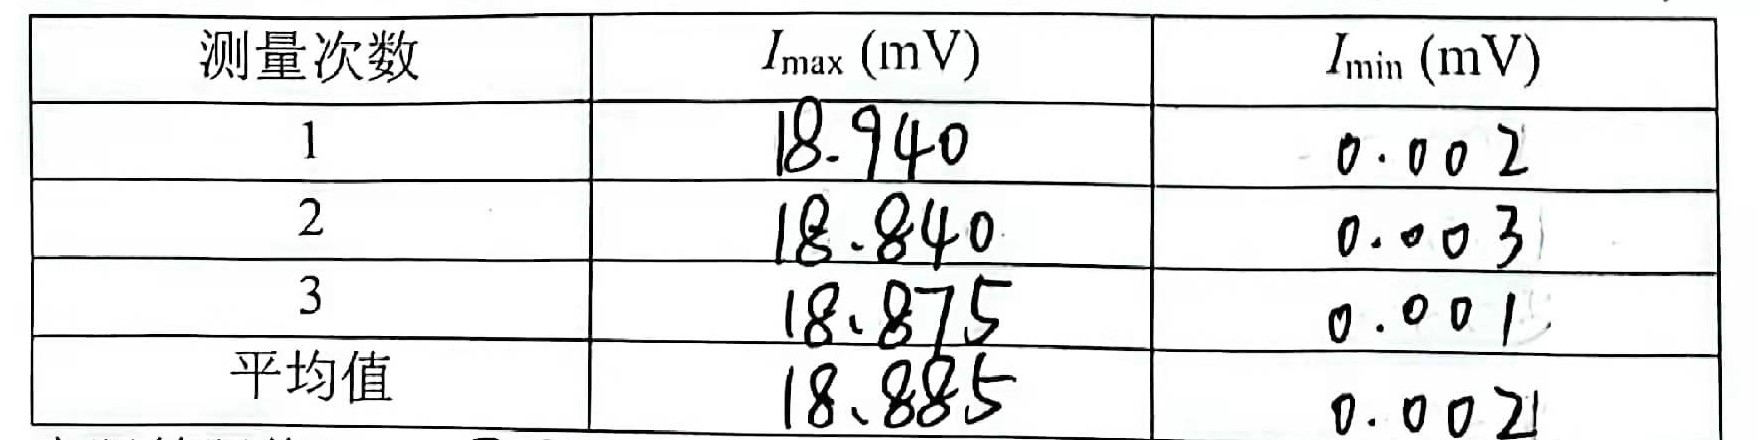 测量次数 Imax (mV) Imin (mV)
1 18.940 0.002
2 18.840 0.003
3 18.875 0.001
平均值 18.885 0.002